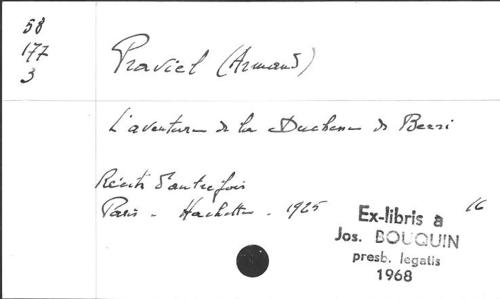 58
177
3
Praviel (Armand)
L'aventure de la Duchesse de Berri
Récits d'autrefois
Paris - Hachette - 1925
16
Ex-libris a
Jos. BOUQUIN
presb. legatis
1968